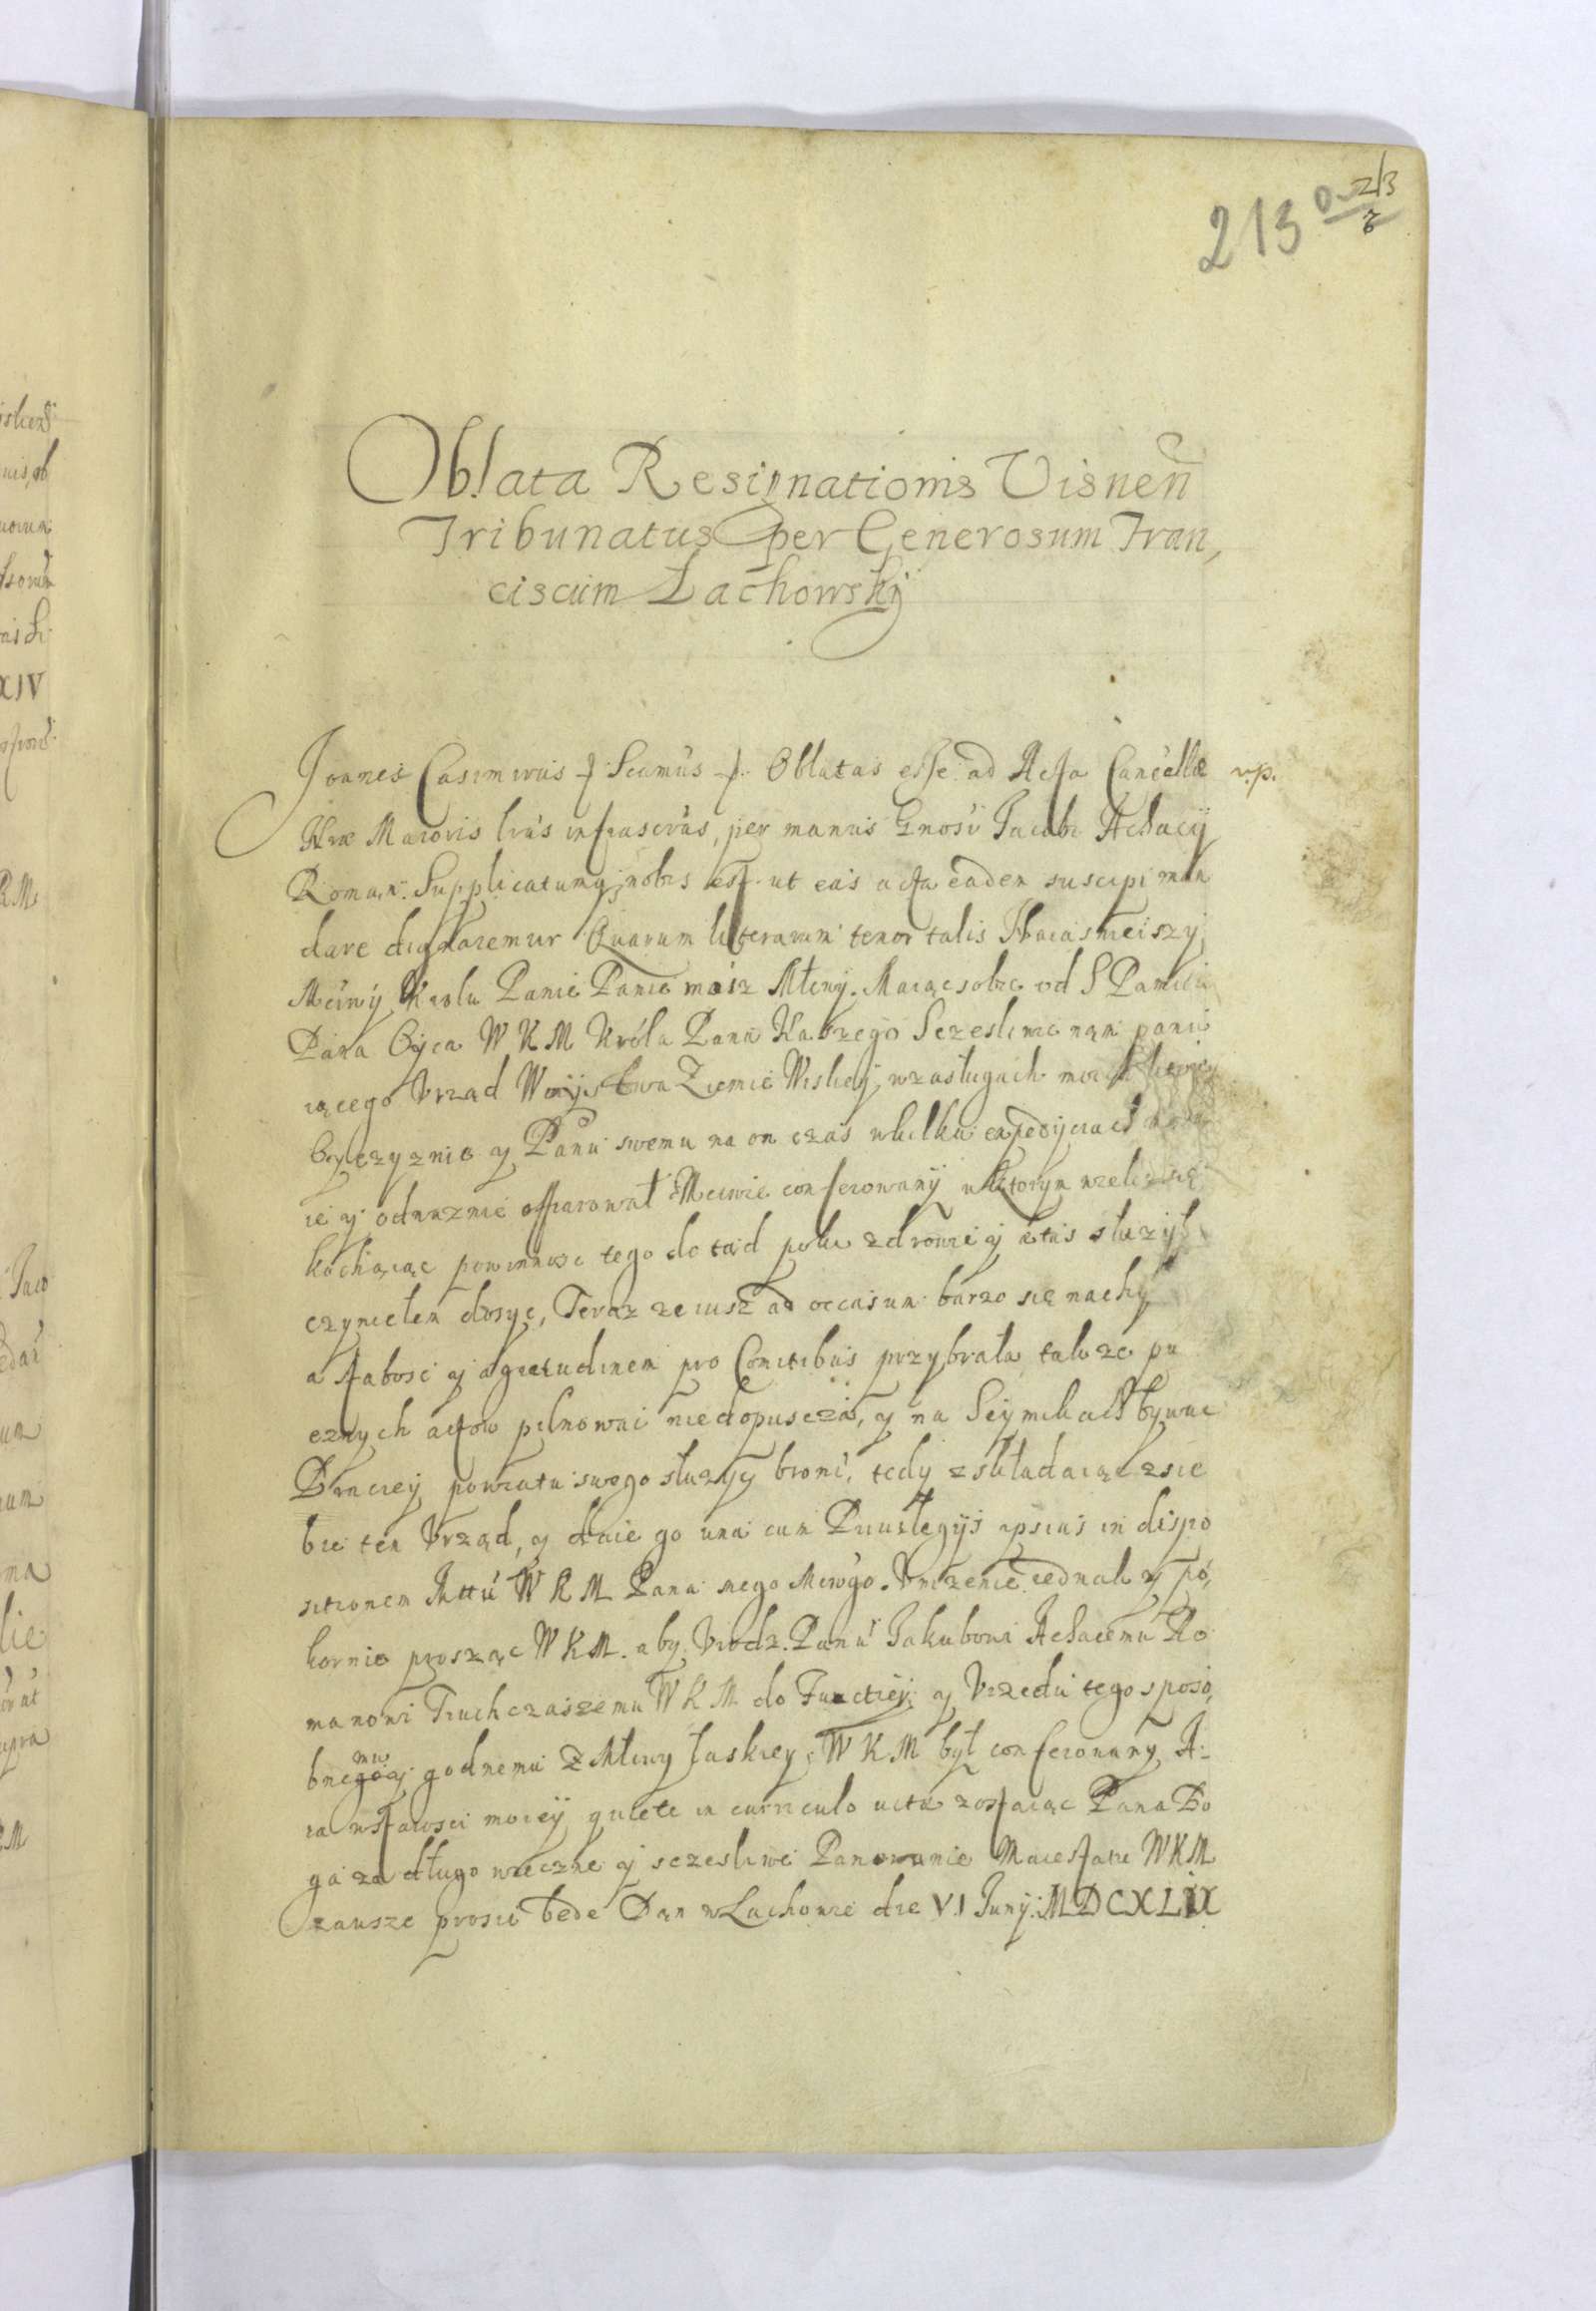 213
213
Oblata Resignationis Visnen̄
Tribunatus per Generosum Fran,
ciscum Łachowskij
Joanes Casimirus f. Scimus f. Oblatas esse ad Acta Cancellæ v.p.
Nræ Maioris lrás infrascrás, per manus Gnosi Jacobi Achacij
Roman: Supplicatumq; nobis est ut eas acta eadem suscipi man
dare dignaremur Quarum literarum tenor talis Naiasnieiszy
Mciwy Krolu Panie Panie mosz Młciwy. Maiąc sobie od S Pamieci
Pana Oyca W K M Króla Pana Naszego Sczesliwie nąm panu
iącego Vrząd Woyistwa Ziemie Wiskiej, w zasługach moich
Oyczyznie y Panu swemu na on czas w kilku expedijciach
ie y odwaznie offiarował Mciwie conferowany w ktorym
kochaiąc powinnosc tego do tąd poki zdrowie y ætas słuzył
czyniełem dosyc, Teraz ze iusz ad occasum barzo się nachy
a słabosc y ægritudinem pro Comitibus przybrała takze pu
cznych actow pilnowac niedopuscza, y na Seymikach bywac
Prnciey powiatu swego słuzyc broni, tedy zskładaiąc zsie
bie ten Vrząd, y daie go una cum Priuilegijs ipsius in dispo
sitionem Mttu W K M Pana mego Mciwgo. Vnizenie iednak y po,
kornie prosząc W K M. aby Vrodz. Panu Jakubowi Achacemu Ro
manowi Truchczaszemu W K M do Functiey y Vrzedu tego sposo,
bnegomu y godnemu Z Młciwy łaskiey W K M był conferowany A:
ia w starosci moiey quiete in curriculo uitæ zostaiąc Pana Bo
ga za długo wieczne y sczesliwe Panowanie Maiestatu W K M
zawsze prosic bede Dan w Lachowie die VI Junij MDCXLIX